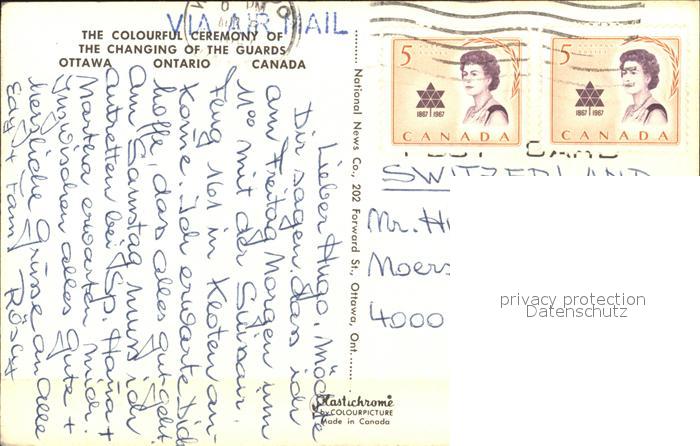 VIA AIR MAIL
THE COLOURFUL CEREMONY OF
THE CHANGING OF THE GUARDS
OTTAWA ONTARIO CANADA
Lieber Hugo, Möchte
Dir sagen, dass ich
am Freitag Morgen um
11⁰⁰ mit der Swissair
Flug 161 in Kloten an-
komme. Ich erwarte Dich
hoffe, das alles gut geht.
Am Samstag muss ich
antretten bei Sp.
Martha erwarten mich.
Inzwischen alles Gute +
herzliche Grüsse an alle
Edgy + Fam. Rösly
National News Co., 202 Forward St., Ottawa, Ont.
Plastichrome
by COLOURPICTURE
Made in Canada
5
1867 1967
CANADA
5
1867 1967
CANADA
POST CARD
SWITZERLAND
Mr. H
Moers
4000
privacy protection
Datenschutz